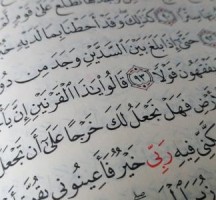 كَذَٰلِكَ وَقَدْ أَحَطْنَا بِمَا لَدَيْهِ
حَتَّىٰ إِذَا بَلَغَ بَيْنَ السَّدَّيْنِ وَجَدَ مِن
يَفْقَهُونَ قَوْلًا ٩٣ قَالُوا يَٰذَا الْقَرْنَيْنِ إِنَّ
فَهَلْ نَجْعَلُ لَكَ خَرْجًا عَلَىٰ أَن تَجْعَلَ
مَكَّنِّي فِيهِ رَبِّي خَيْرٌ فَأَعِينُونِي بِقُوَّةٍ